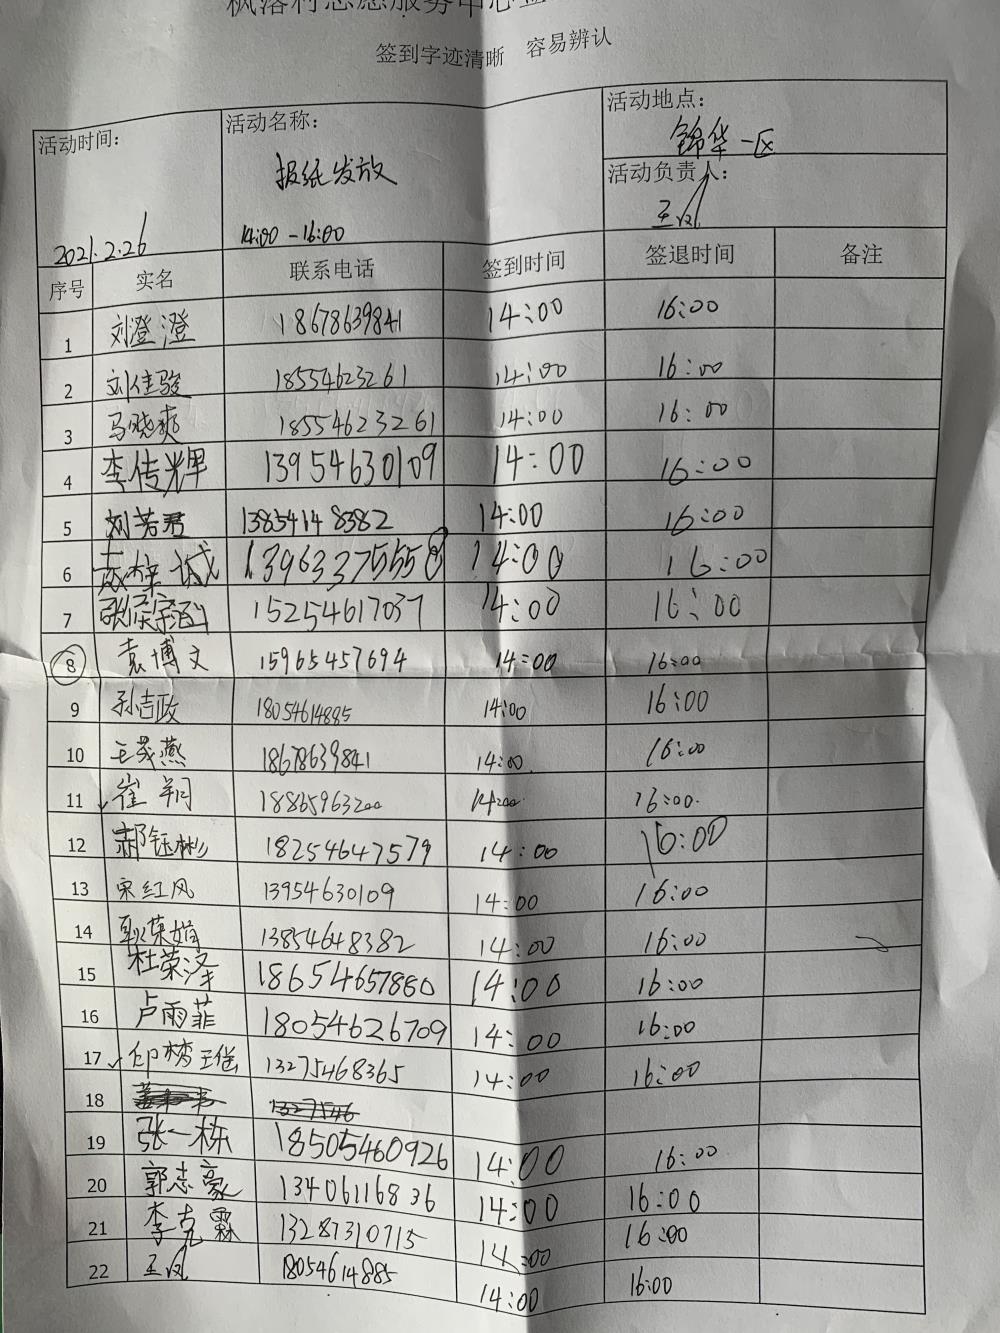 签到字迹清晰 容易辨认
活动时间： 活动名称： 活动地点：
报纸发放 锦华一区
活动负责人：
王凤
2021.2.26 14:00-16:00
序号 实名 联系电话 签到时间 签退时间 备注
1 刘澄澄 18678639841 14:00 16:00
2 刘佳骏 18554623261 14:00 16:00
3 马晓爽 18554623261 14:00 16:00
4 李传辉 13954630109 14:00 16:00
5 刘若君 13854148382 14:00 16:00
6 诚 14:00 16:00
7 15254617037 14:00 16:00
8 袁博文 15965457694 14:00 16:00
9 孙吉政 18054614885 14:00 16:00
10 王茂燕 18678639841 14:00 16:00
11 崔翔 18865963200 14:00 16:00
12 郝钰彬 18254647579 14:00 16:00
13 宋红风 13954630109 14:00 16:00
14 耿荣娟 13854648382 14:00 16:00
15 杜荣泽 18654657880 14:00 16:00
16 卢雨菲 18054626709 14:00 16:00
17 13275468365 14:00 16:00
18
19 张一栋 18505460926 14:00 16:00
20 郭志豪 13406116836 14:00 16:00
21 李克霖 13287310715 14:00 16:00
22 王凤 18054614885 14:00 16:00